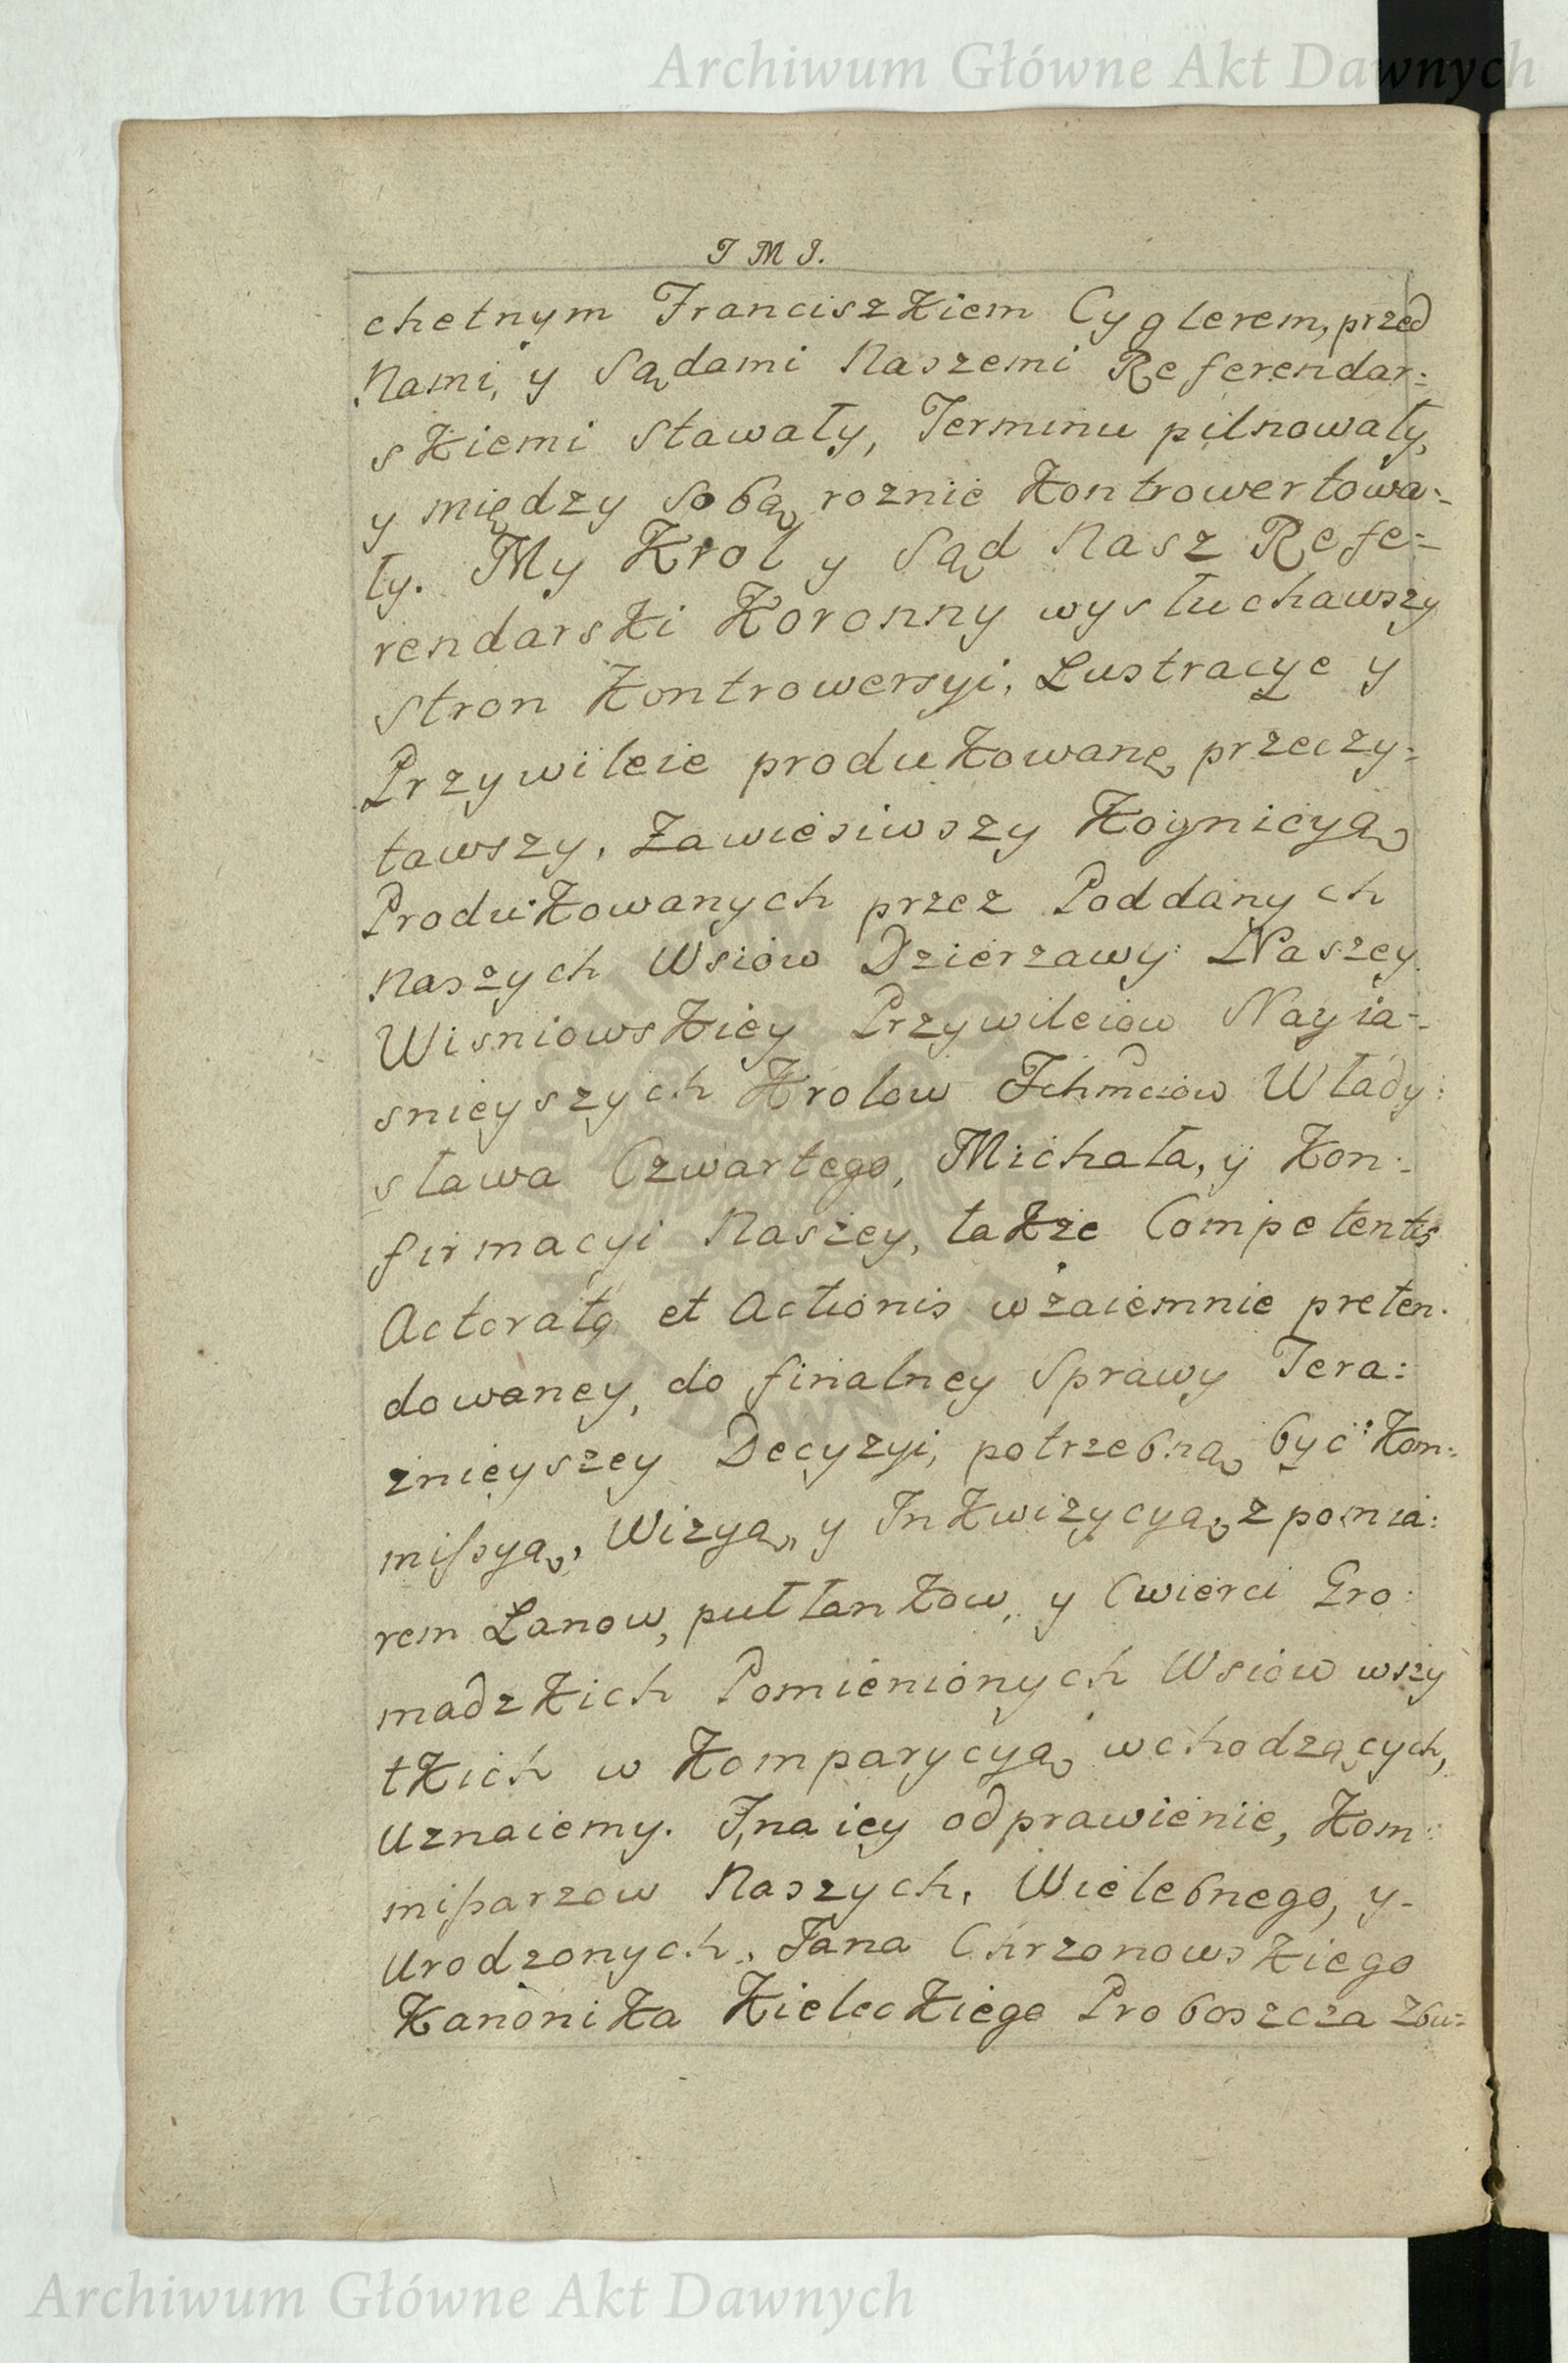 Archiwum Główne Akt Dawnych
J M J.
chetnym Franciszkiem Cyglerem, przed
Nami, y Sądami Naszemi Referendar:
skiemi stawały, Terminu pilnowały,
y między sobą roznie kontrowertowa:
ły. My Krol y Sąd Nasz Refe:
rendarski Koronny wysłuchawszy
stron kontrowersyi, Lustracye y
Przywileie produkowanę przeczy:
tawszy, zawiesiwszy kognicyą
Produkowanych przez Poddanych
Naszych Wsiow Dzierzawy Naszey
Wisniowskiey Przywileiow Nayia:
snieyszych Krolow Ichmciow Włady:
sława Czwartego, Michała, y Kon:
firmacyi Naszey, takze Competentis
Actoratg et Actionis wzaiemnie preten:
dowaney, do finalney sprawy Tera:
znieyszey Decyzyi, potrzebną być Kom:
mißyą, Wizyą, y Inkwizycyą, z pomia:
rem Lanow, pułłankow, y Cwierci Gro:
madzkich Pomienionych Wsiow wszy
tkich w komparycyą wchodzących,
Uznaiemy. I, na iey odprawienie, Kom:
mißarzow Naszych, Wielebnego, y
Urodzonych, Jana Chrzonowskiego
Kanonika Kieleckiego Proboszcza Zbu:
Archiwum Główne Akt Dawnych